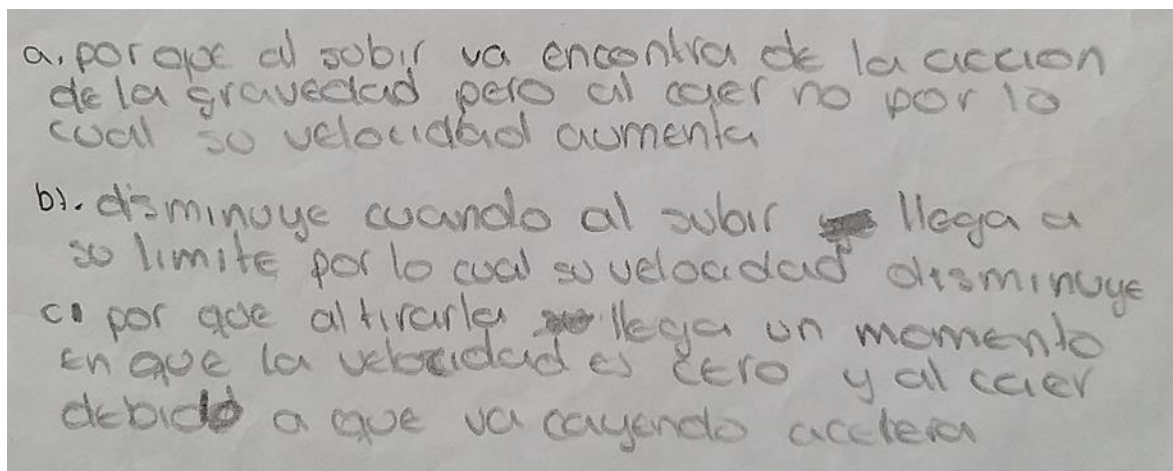 a. por que al subir va encontra de la accion
de la gravedad pero al caer no por lo
cual su velocidad aumenta
b). disminuye cuando al subir llega a
su limite por lo cual su velocidad disminuye
c. por que al tirarla llega un momento
en que la velocidad es cero y al caer
debido a que va cayendo acelera